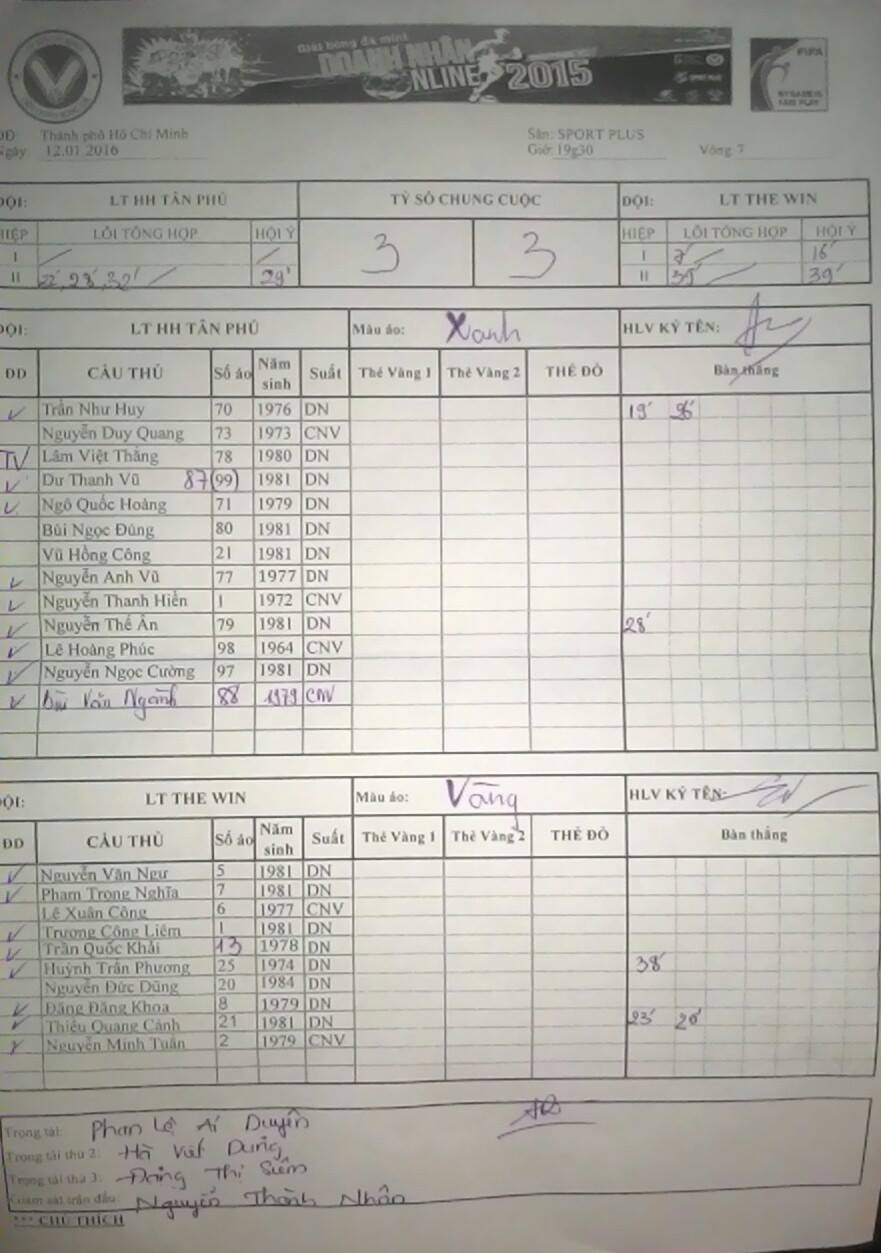 Giải bóng đá mini
DOANH NHÂN
NLINE 2015
FIFA
MY GAME IS
FAIR PLAY
Thành phố Hồ Chí Minh
Sân: SPORT PLUS
12.01.2016
Giờ: 19g30 Vòng 7
ĐỘI: LT HH TÂN PHÚ TỶ SỐ CHUNG CUỘC ĐỘI: LT THE WIN
HIỆP LỖI TỔNG HỢP HỘI Ý 3 3 HIỆP LỖI TỔNG HỢP HỘI Ý
I I 7' 16'
II 22', 23', 32' 29' II 39' 39'
ĐỘI: LT HH TÂN PHÚ Màu áo: Xanh HLV KÝ TÊN:
ĐD CẦU THỦ Số áo Năm sinh Suất Thẻ Vàng 1 Thẻ Vàng 2 THẺ ĐỎ Bàn thắng
✓ Trần Như Huy 70 1976 DN 19' 26'
Nguyễn Duy Quang 73 1973 CNV
TV Lâm Việt Thắng 78 1980 DN
✓ Dư Thanh Vũ 87 (99) 1981 DN
✓ Ngô Quốc Hoàng 71 1979 DN
Bùi Ngọc Dũng 80 1981 DN
Vũ Hồng Công 21 1981 DN
✓ Nguyễn Anh Vũ 77 1977 DN
✓ Nguyễn Thanh Hiền 1 1972 CNV
✓ Nguyễn Thế Ân 79 1981 DN 28'
✓ Lê Hoàng Phúc 98 1964 CNV
✓ Nguyễn Ngọc Cường 97 1981 DN
✓ Bùi Văn Ngành 88 1979 CNV
ĐỘI: LT THE WIN Màu áo: Vàng HLV KÝ TÊN:
ĐD CẦU THỦ Số áo Năm sinh Suất Thẻ Vàng 1 Thẻ Vàng 2 THẺ ĐỎ Bàn thắng
✓ Nguyễn Văn Ngư 5 1981 DN
✓ Phạm Trọng Nghĩa 7 1981 DN
Lê Xuân Công 6 1977 CNV
✓ Trương Công Liêm 1 1981 DN
✓ Trần Quốc Khải 13 1978 DN
✓ Huỳnh Trấn Phương 25 1974 DN 38'
Nguyễn Đức Dũng 20 1984 DN
✓ Đặng Đăng Khoa 8 1979 DN
✓ Thiều Quang Cảnh 21 1981 DN 23' 20'
✓ Nguyễn Minh Tuấn 2 1979 CNV
Trọng tài: Phan Lệ Ái Duyên
Trọng tài thứ 2: Hà Việt Dũng
Trọng tài thứ 3: Đặng Thị Siêm
Giám sát trận đấu: Nguyễn Thành Nhân
*** CHÚ THÍCH